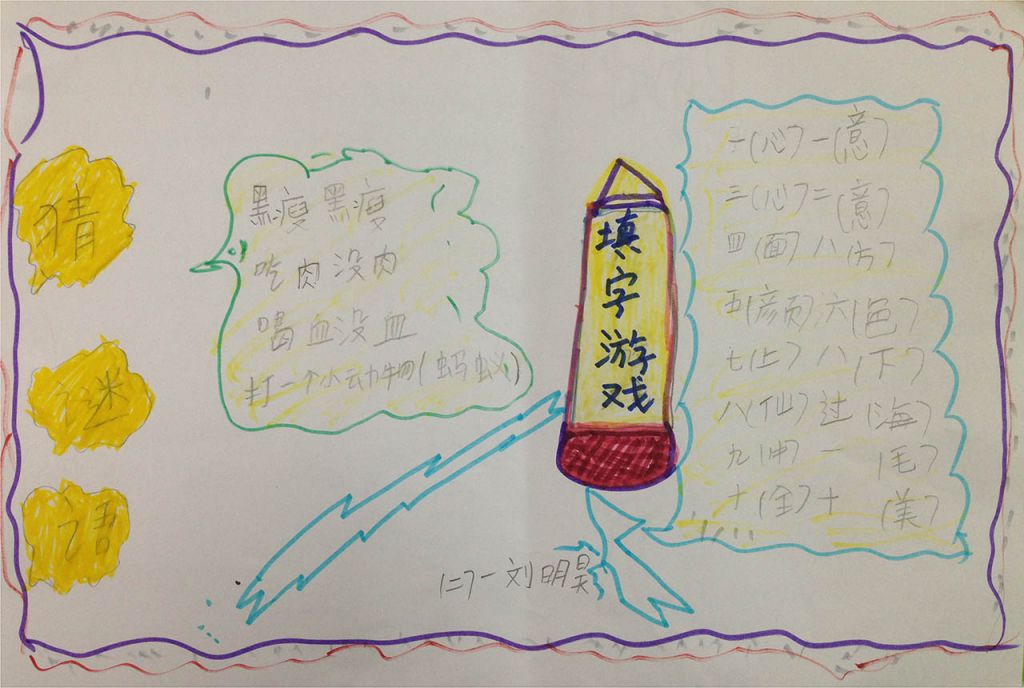 猜
谜
语
黑瘦黑瘦
吃肉没肉
喝血没血
打一个小动物(蚂蚁)
填字游戏
一(心)一(意)
三(心)二(意)
四(面)八(方)
五(颜)六(色)
七(上)八(下)
八(仙)过(海)
九(牛)一(毛)
十(全)十(美)
(二)一刘明昊